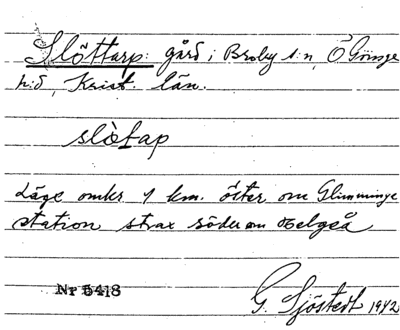 Slöttarp: gård i Broby s:n, Ö Göinge
h:d, Krist. län.
slòtap
Läge omkr 1 km. öster om Glimminge
station strax söder om Helgeå
Nr 5418
G. Sjöstedt 1942